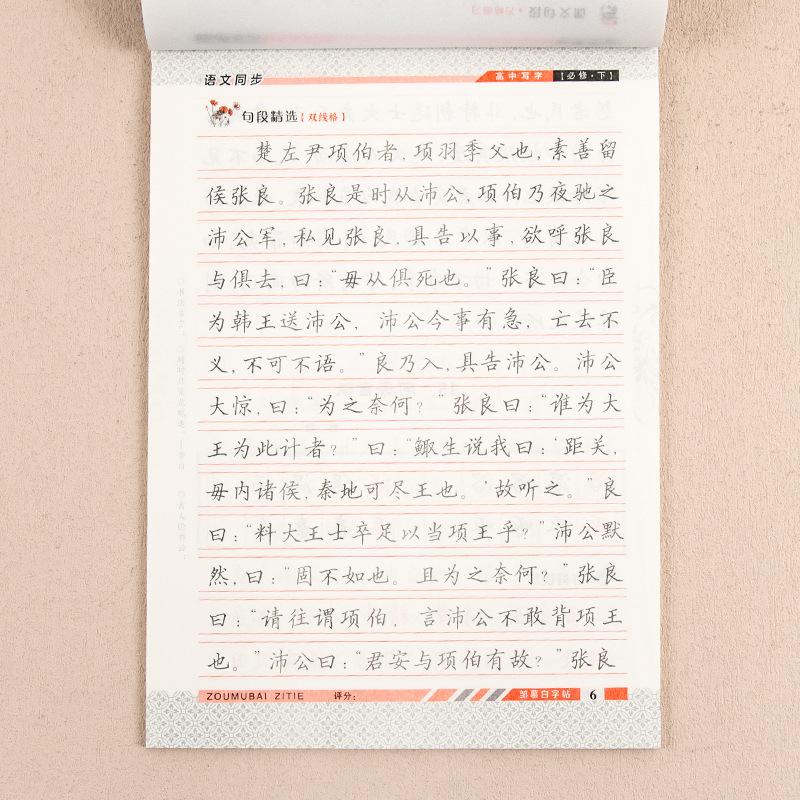 语文同步
高中写字
【必修·下】
句段精选【双线格】
楚左尹项伯者，项羽季父也，素善留
侯张良。张良是时从沛公，项伯乃夜驰之
沛公军，私见张良，具告以事，欲呼张良
与俱去，曰：“毋从俱死也。”张良曰：“臣
为韩王送沛公，沛公今事有急，亡去不
义，不可不语。”良乃入，具告沛公。沛公
大惊，曰：“为之奈何？”张良曰：“谁为大
王为此计者？”曰：“鲰生说我曰：‘距关，
毋内诸侯，秦地可尽王也。’故听之。”良
曰：“料大王士卒足以当项王乎？”沛公默
然，曰：“固不如也。且为之奈何？”张良
曰：“请往谓项伯，言沛公不敢背项王
也。”沛公曰：“君安与项伯有故？”张良
ZOUMUBAI ZITIE
评分：
邹慕白字帖
6